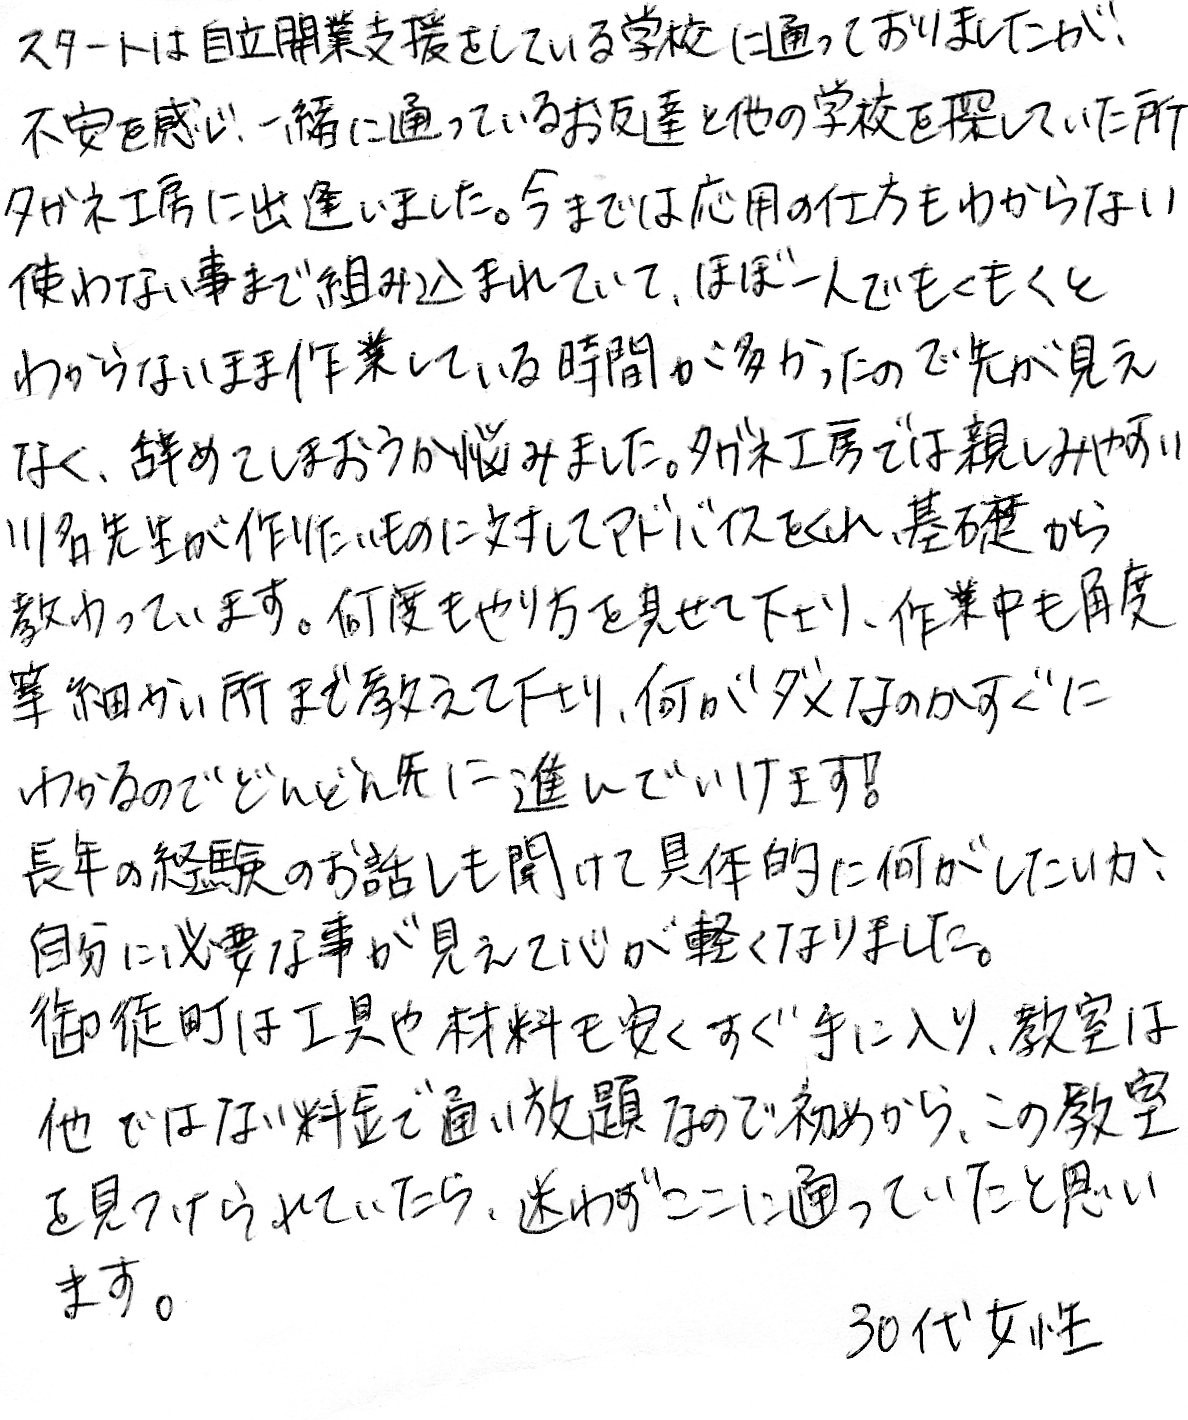 スタートは自立開業支援をしている学校に通っておりましたが、
不安を感じ、一緒に通っているお友達と他の学校を探していた所
タガネ工房に出逢いました。今までは応用の仕方もわからない
使わない事まで組み込まれていて、ほぼ一人でもくもくと
わからないまま作業している時間が多かったので先が見え
なく、辞めてしまおうか悩みました。タガネ工房では親しみやすい
川名先生が作りたいものに対してアドバイスをくれ、基礎から
教わっています。何度もやり方を見せて下さり、作業中も角度
等細かい所まで教えて下さり、何がダメなのかすぐに
わかるのでどんどん先に進んでいけます!!
長年の経験のお話しも聞けて具体的に何がしたいか、
自分に必要な事が見えて心が軽くなりました。
御徒町は工具や材料も安くすぐ手に入り、教室は
他ではない料金で通い放題なので初めから、この教室
を見つけられていたら、迷わずここに通っていたと思い
ます。
30代女性